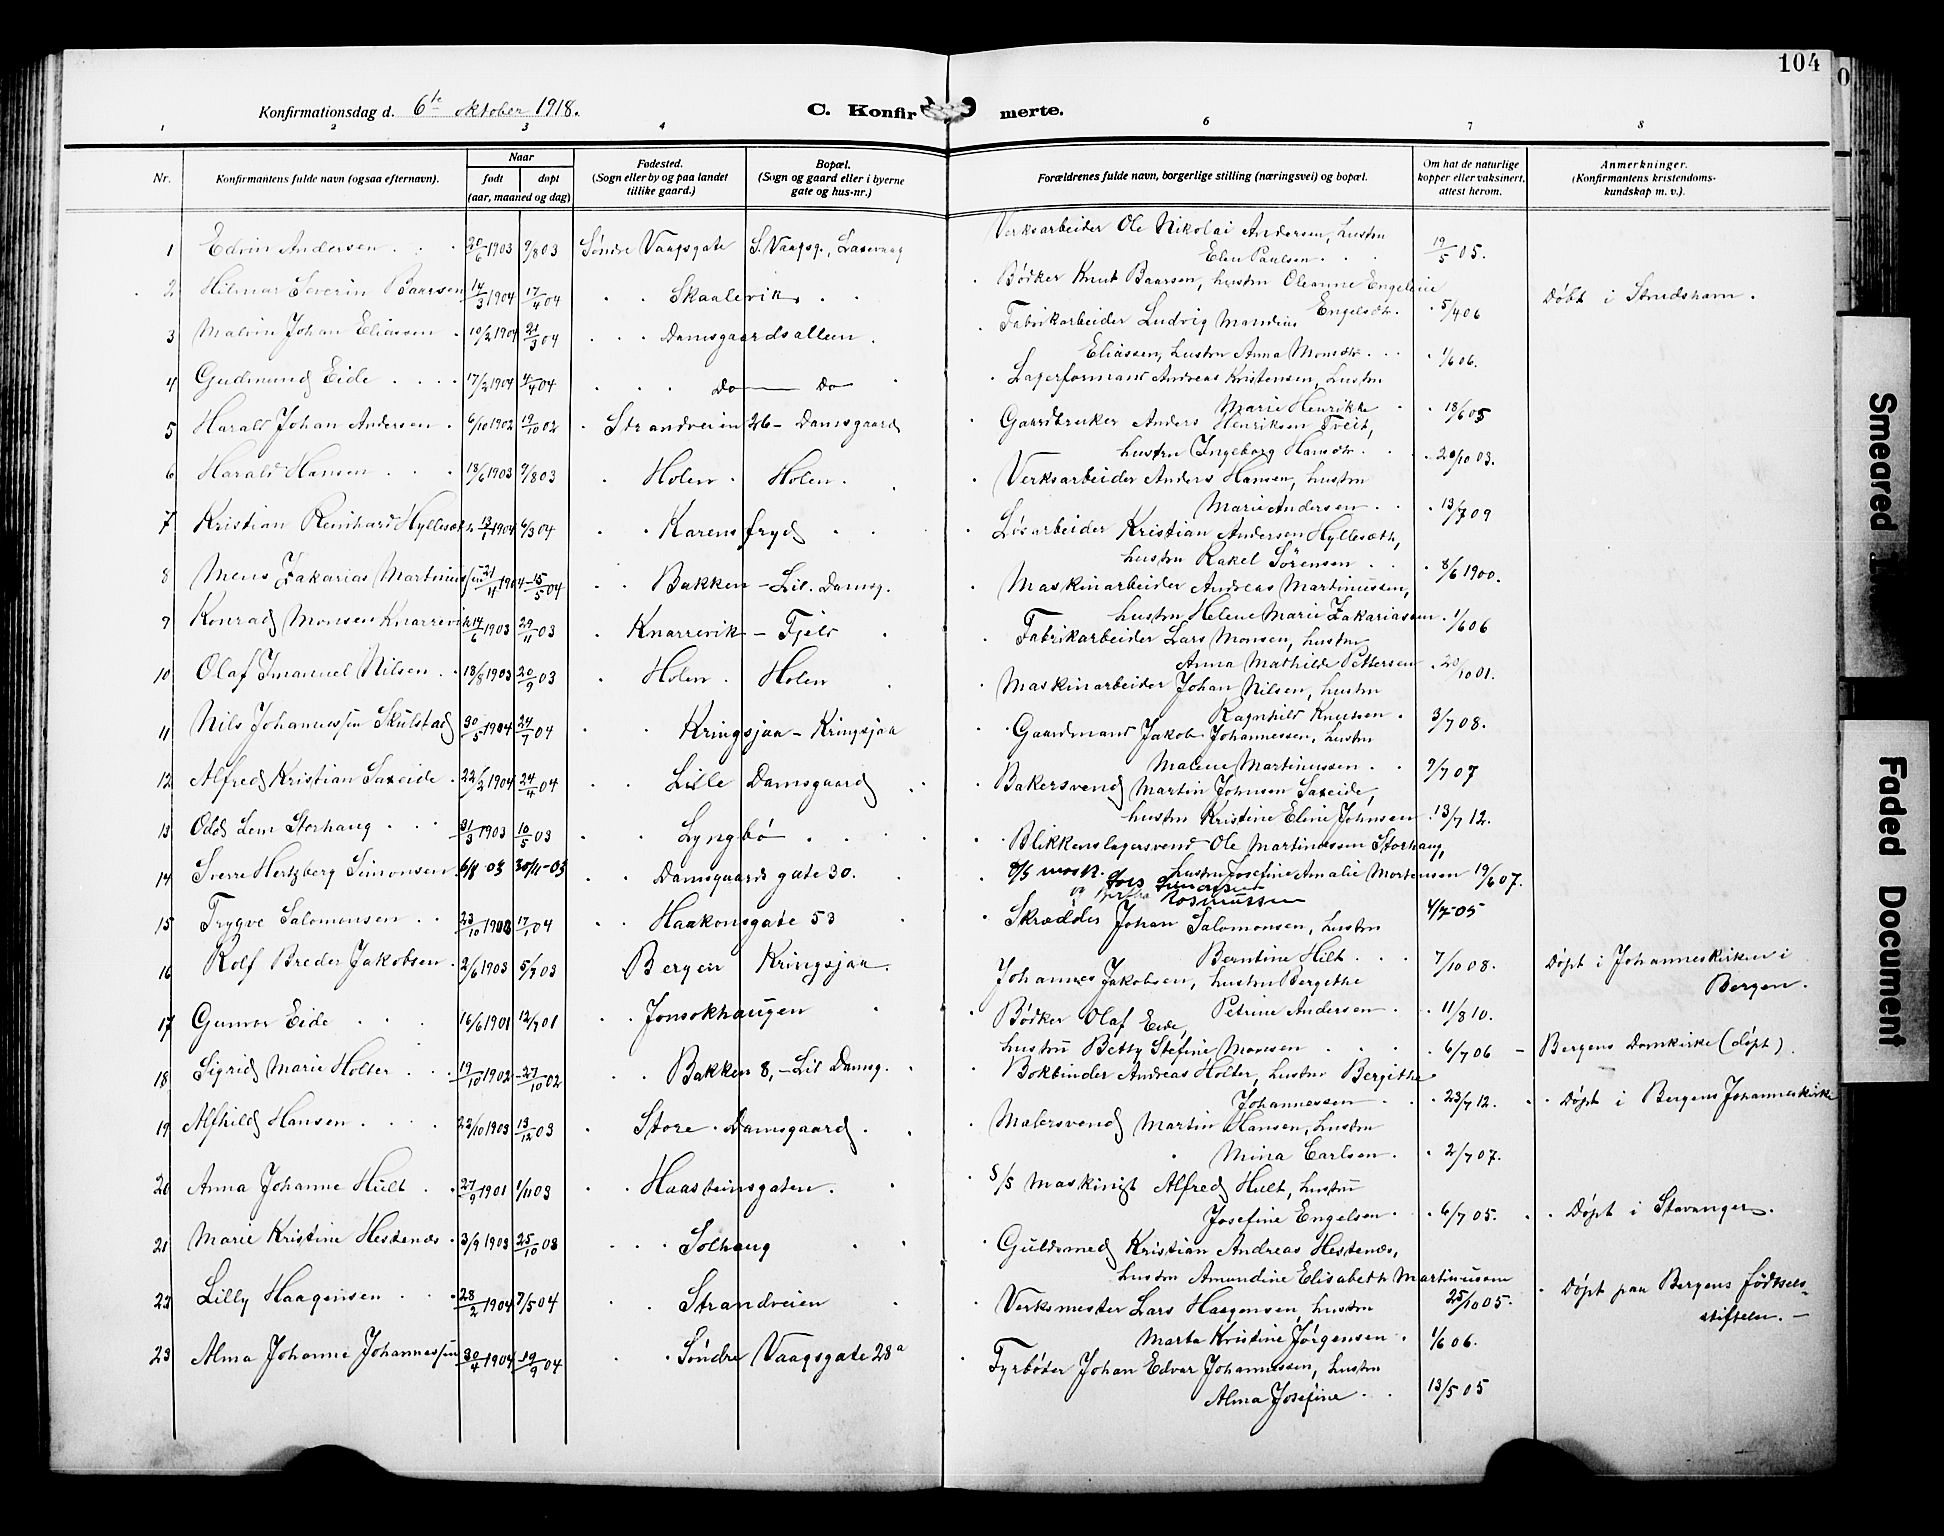 104
Konfirmationsdag d. 6te oktober 1918.
C. Konfirmerte.
1 2 3 4 6 7 8
Nr. Konfirmantens fulde navn (ogsaa efternavn). Naar født døpt (aar, maaned og dag) Fødested. (Sogn eller by og paa landet tillike gaard.) Bopæl. (Sogn og gaard eller i byerne gate og hus-nr.) Forældrenes fulde navn, borgerlige stilling (næringsvei) og bopæl. Om hat de naturlige kopper eller vaksinert, attest herom. Anmerkninger. (Konfirmantens kristendomskundskap m. v.).
1 Edvin Andersen 9/8 03 Søndre Vaagsgate S. Vaagsg., Laxevaag Verksarbeider Ole Nikolai Andersen, hustru
Elen Paulsen 19/5 05.
2 Hilmar Severin Baarsen 14/3 1904 17/4 04 Skaalevik Bødker Knut Baarsen, hustru Oleanne Engeline
Engelsdtr. 5/4 06 Døbt i Strudshavn.
3 Malvin Johan Eliassen 10/2 1904 21/3 04 Damsgaardsalleen. Fabrikarbeider Ludvig Mandius
Eliassen, hustru Anna Monsdtr. 1/6 06.
4 Gudmund Eide 17/2 1904 4/4 04 Do Do Lagerformand Andreas Kristensen, hustru
Marie Henrikke 18/6 05
5 Harald Johan Andersen 6/10 1902 19/10 02 Strandveien 26 - Damsgaard Gaardbruker Anders Henriksen Tveit,
hustru Ingeborg Hansdtr. 20/10 03.
6 Harald Hansen 18/6 1903 9/8 03 Holen Holen. Verksarbeider Anders Hansen, hustru
Marie Andersen 13/7 09
7 Kristian Reinhard Hyllesæth 1904 6/3 04 Karensfryd Løsarbeider Kristian Andersen Hyllesæth,
hustru Rakel Sørensen 8/6 1900.
8 Mens Zakarias Martinussen 1904 15/5 04 Bakken - Lil. Damsg. Maskinarbeider Andreas Martinussen,
hustru Helene Marie Zakariassen 1/6 06
9 Konrad Monsen Knarrevik 14/6 1903 29/11 03 Knarrevik - Fjeld Fabrikarbeider Lars Monsen, hustru
Anna Mathilde Pettersen 20/10 01.
10 Olaf Imanuel Nilsen 18/8 1903 20/9 03 Holen Holen Maskinarbeider Johan Nilsen, hustru
Ragnhild Knudsen 3/7 08.
11 Nils Johannessen Skulstad 30/5 1904 24/7 04 Kringsjaa - Kringsjaa Gaardmand Jakob Johannessen, hustru
Malene Martinussen 9/7 07
12 Alfred Kristian Saxeide 22/2 1904 24/4 04 Lille Damsgaard Bakersvend Martin Johnsen Saxeide,
hustru Kristine Eline Johnsen 13/7 12.
13 Odd Lem Storhaug 31/3 1903 10/5 03 Lyngbø Blikkenslagersvend Ole Martinussen Storhaug,
hustru Josefine Amalie Mortensen 19/6 07.
14 Sverre Hertzberg Simonsen 6/8 03 30/11-03 Damsgaards gate 30. Rosmussen 4/7-05
15 Trygve Salomonsen 17/1 04 Haakonsgate 53 Skrædder Johan Salomonsen, hustru
Berntine Hilt 7/10 08.
16 Rolf Breder Jakobsen 2/6 1903 5/7 03 Bergen Kringsjaa. Johannes Jakobsen, hustru Bergithe
Petrine Andersen 11/8 10. Døpt i Johanneskirken i
Bergen.
17 Gunvor Eide 16/6 1901 12/7 01 Jonsokhaugen Bødker Olaf Eide,
hustru Betty Stefine Monsen 6/7 06 - Bergens Domkirke (døpt).
18 Sigrid Marie Holter 19/10 1902 27/10 02 Bakken 8, - Lil Damsg. Bokbinder Andreas Holter, hustru Bergithe
Johannessen 23/7 12. Døpt i Bergens Johanneskirke
19 Alfhild Hansen 22/10 1903 13/12 03 Store Damsgaard. Malersvend Martin Hansen, hustru
Mina Carlsen 2/7 07.
20 Anna Johanne Hult 27/9 1901 1/11 03 Haasteinsgaten. S/S Maskinist Alfred Hult, hustru
Josefine Engelsen 6/7 05. Døpt i Stavanger.
21 Marie Kristine Hestenæs 3/9 1903 25/10 03 Solhaug Guldsmed Kristian Andreas Hestenæs,
hustru Amundine Elisabeth Martinussen 25/10 05.
22 Lilly Haagensen 28/2 1904 7/5 04 Strandveien Verksmester Lars Haagensen, hustru
Marta Kristine Jørgensen 1/6 06. Døpt paa Bergens fødsels-
stiftelse. -
23 Alma Johanne Johannessen 30/4 1904 19/9 04 Søndre Vaagsgate 28a Fyrbøder Johan Edvar Johannessen, hustru
Alma Josefine 13/5 05
Smeared
Faded Document